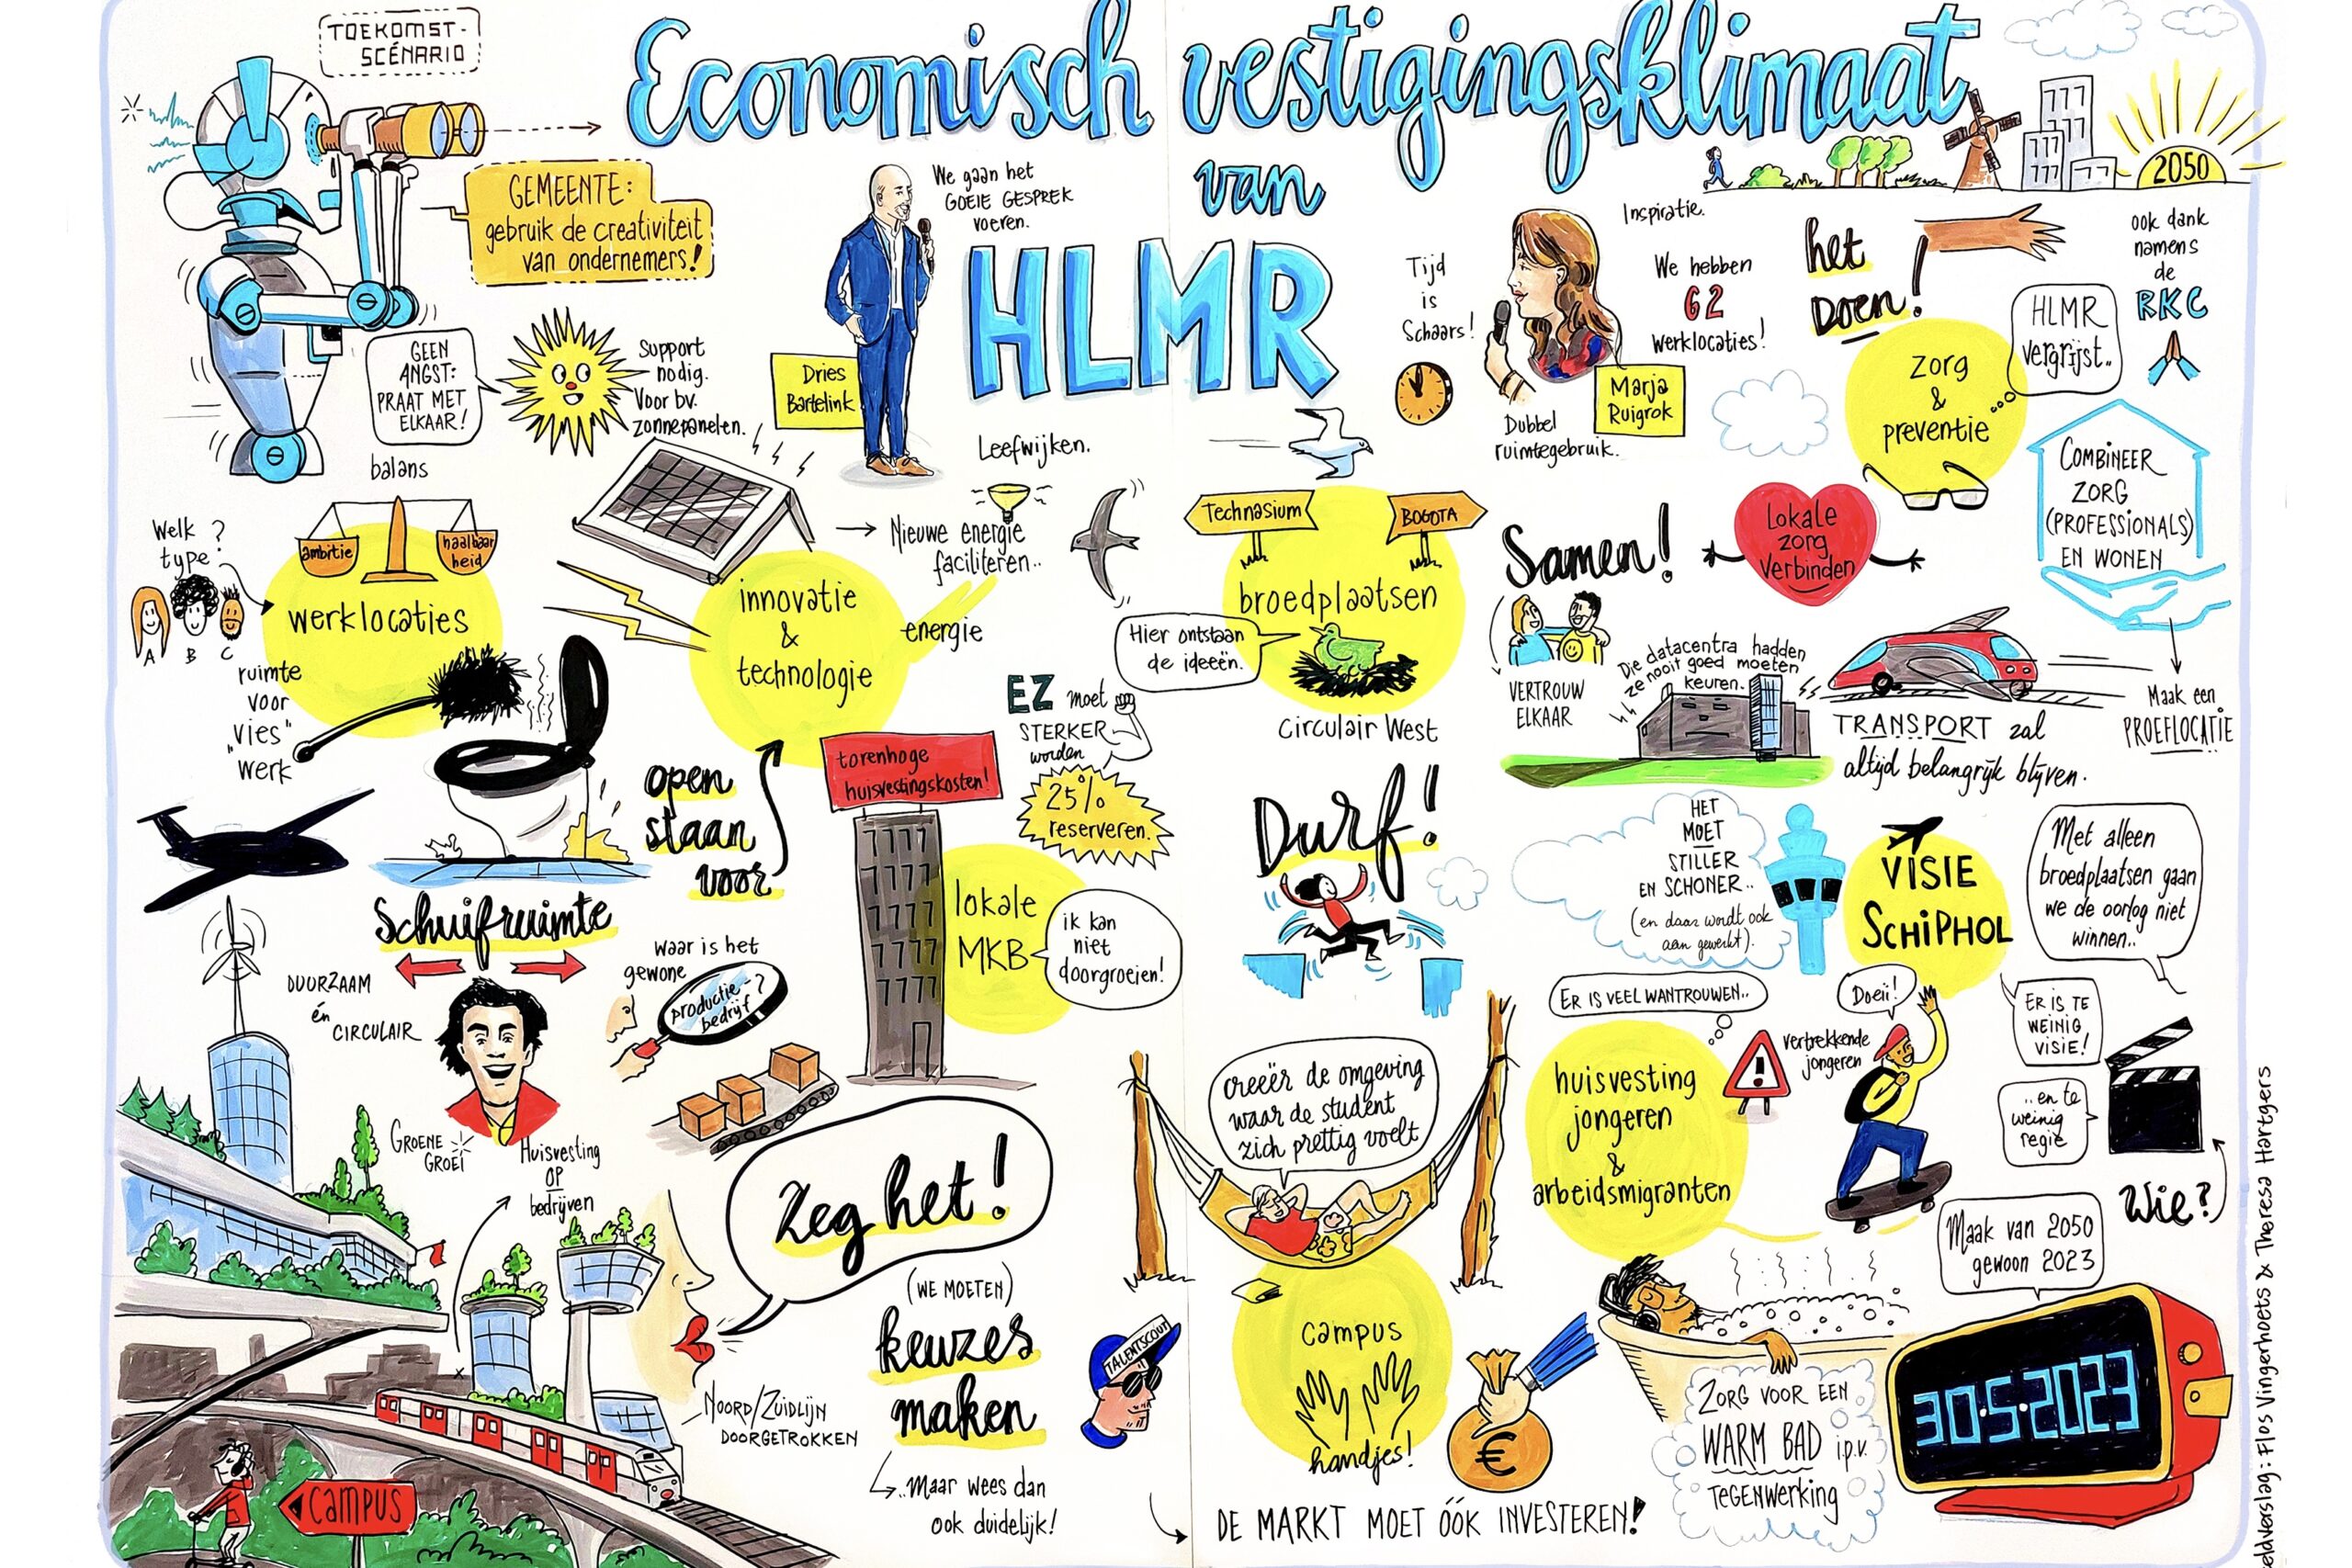 TOEKOMST-
SCÉNARIO
Economisch vestigingsklimaat
van
HLMR
2050
GEMEENTE:
gebruik de creativiteit
van ondernemers!
We gaan het
GOEIE GESPREK
voeren.
Dries
Bartelink
Leefwijken.
Tijd
is
Schaars!
Inspiratie.
We hebben
62
werklocaties!
Marja
Ruigrok
Dubbel
ruimtegebruik.
het
Doen!
ook dank
namens
de
RKC
HLMR
vergrijst..
zorg
&
preventie
COMBINEER
ZORG
(PROFESSIONALS)
EN WONEN
Maak een
PROEFLOCATIE
GEEN
ANGST:
PRAAT MET
ELKAAR!
Support
nodig.
Voor bv.
zonnepanelen.
balans
ambitie
haalbaar
heid
Welk ?
type?
A B C
werklocaties
ruimte
voor
"vies"
werk
innovatie
&
technologie
energie
Nieuwe energie
faciliteren..
open
staan
voor
Technasium
BOGOTA
broedplaatsen
Hier ontstaan
de ideeën.
Circulair West
Samen!
VERTROUW
ELKAAR
Lokale
zorg
Verbinden
Die datacentra hadden
ze nooit goed moeten
keuren.
TRANSPORT zal
altijd belangrijk blijven.
EZ moet
STERKER
worden
25%
reserveren.
torenhoge
huisvestingskosten!
lokale
MKB
ik kan
niet
doorgroeien!
Durf!
HET
MOET
STILLER
EN SCHONER..
(en daar wordt ook
aan gewerkt).
VISIE
SCHIPHOL
Met alleen
broedplaatsen gaan
we de oorlog niet
winnen..
Schuifruimte
DUURZAAM
én
CIRCULAIR
waar is het
gewone
productie-?
bedrijf
GROENE
GROEI
Huisvesting
OP
bedrijven
Zeg het!
(WE MOETEN)
keuzes
maken
..Maar wees dan
ook duidelijk!
NOORD/ZUIDLIJN
DOORGETROKKEN
CAMPUS
TALENTSCOUT
creëër de omgeving
waar de student
zich prettig voelt
campus
handjes!
€
DE MARKT MOET ÓÓK INVESTEREN!
ER IS VEEL WANTROUWEN..
huisvesting
jongeren
&
arbeidsmigranten
vertrekkende
jongeren
Doeii!
ER IS TE
WEINIG
VISIE!
..en te
weinig
regie
Wie?
Maak van 2050
gewoon 2023
30-5-2023
ZORG VOOR EEN
WARM BAD i.p.v.
TEGENWERKING
eldverslag: Flos Vingerhoets & Theresa Hartgers